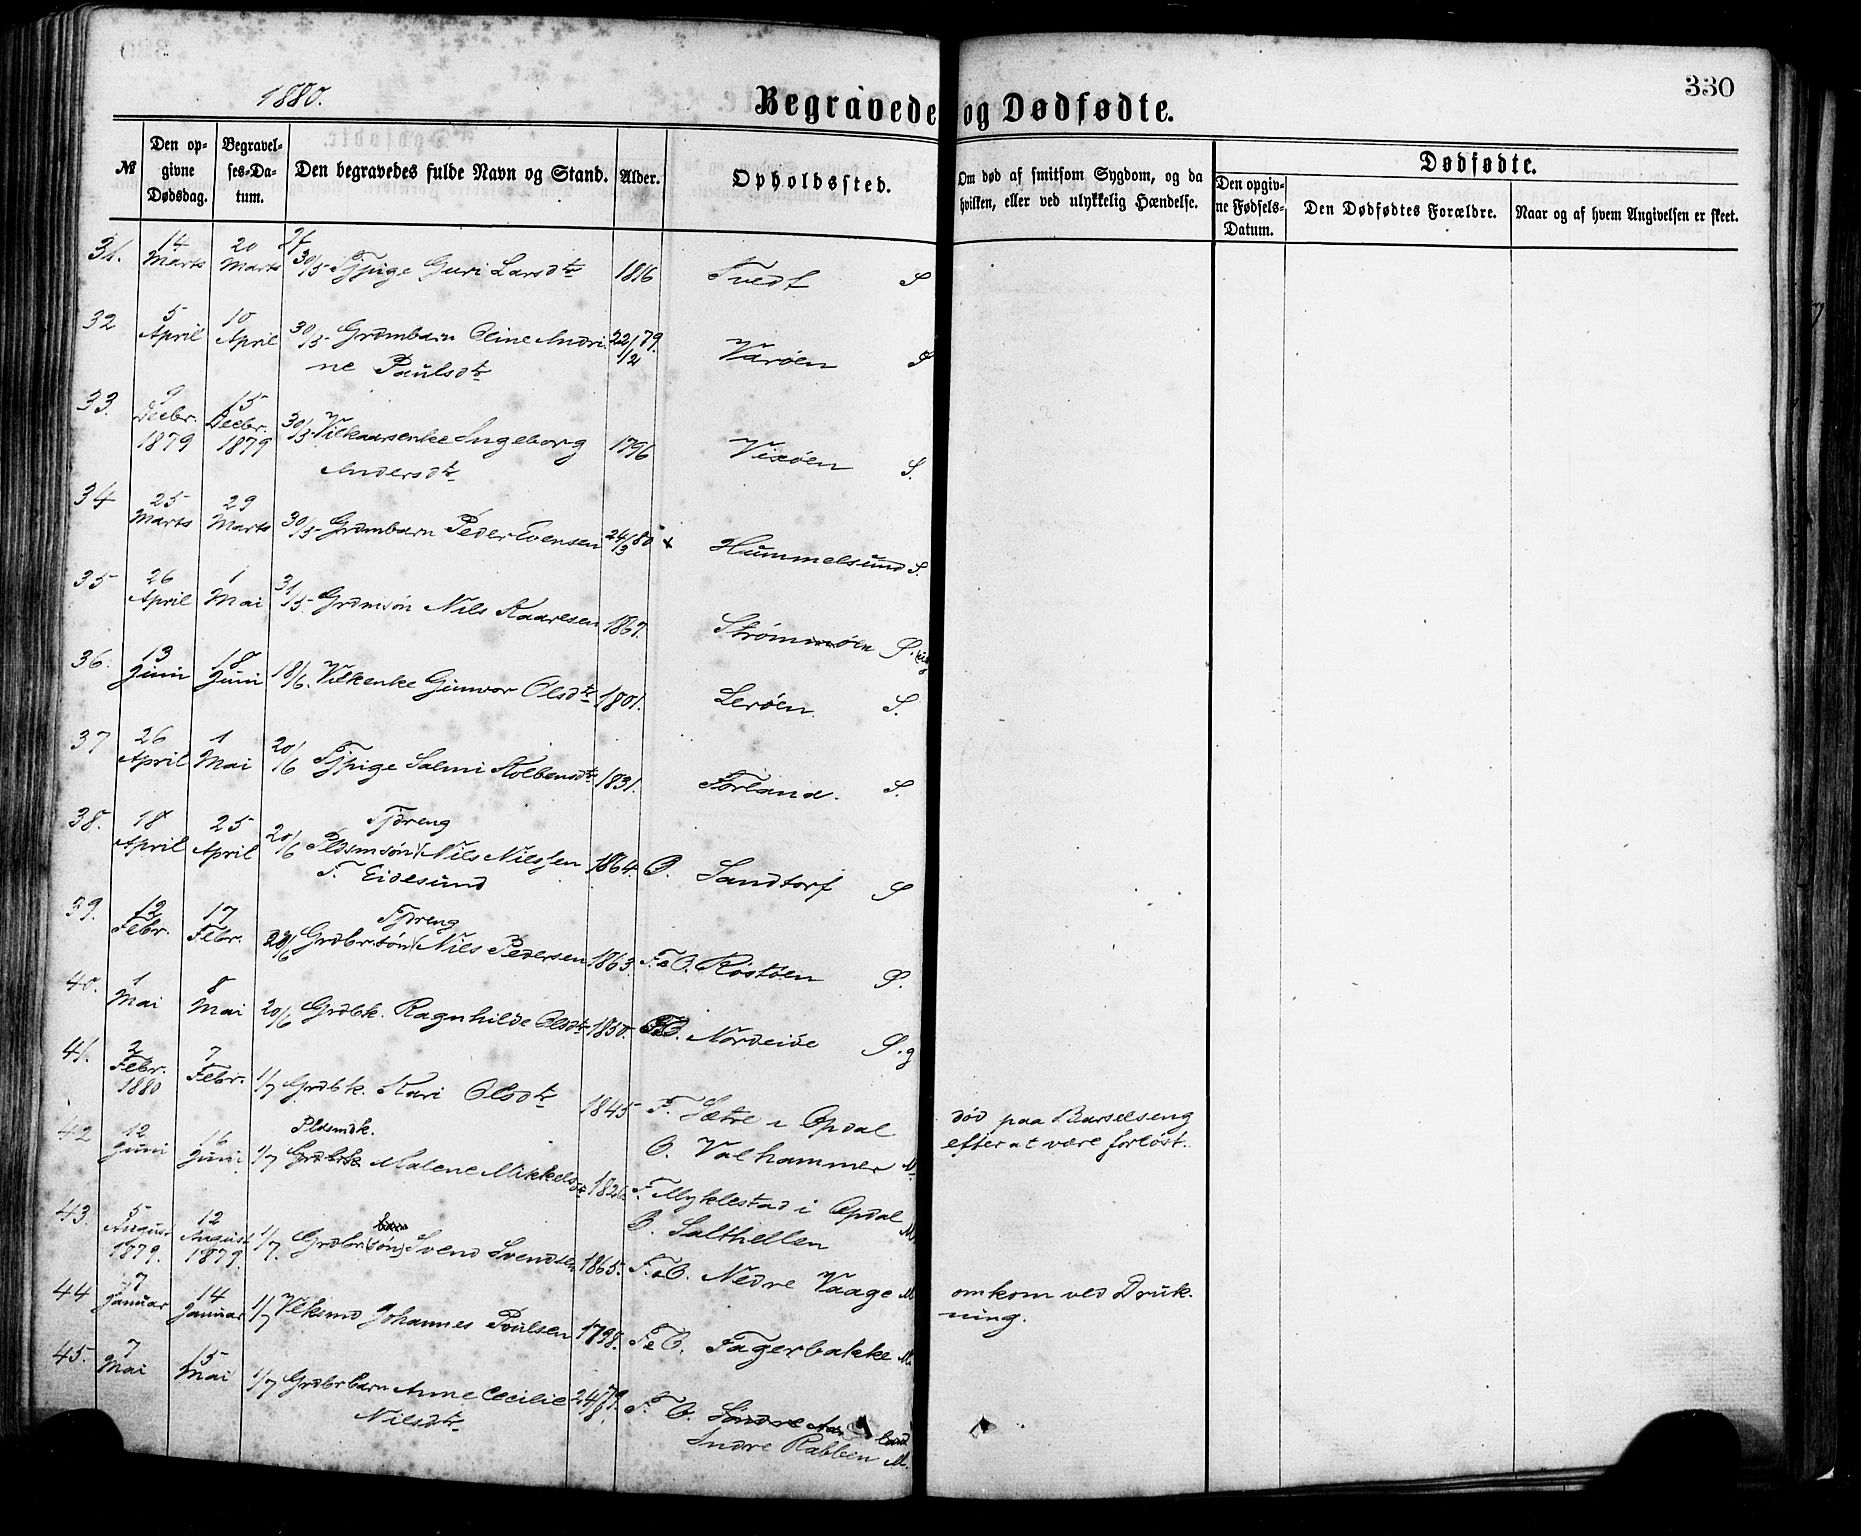 1880.
Begravede og Dødfødte.
330
№
Den opgivne Dødsdag.
Begravelses-Datum.
Den begravedes fulde Navn og Stand.
Alder.
Opholdssted.
Om død af smitsom Sygdom, og da hvilken, eller ved ulykkelig Hændelse.
Dødfødte.
Den opgivne Fødsels-Datum.
Den Dødfødtes Forældre.
Naar og af hvem Angivelsen er skeet.
31. 14 Marts 20 Marts 30/5 Tjpige Guri Larsdtr 1816 Tvedt S
32 5 April 10 April 30/5 Grdmbarn Oline Andri- 22/12 79. Varøen S
ne Paulsdtr
33. 9 Decbr. 1879 15 Decbr. 1879 30/5 Vilkaarsenke Ingeborg 1796 Vixøen S.
Andersdtr
34 25 Marts 29 Marts 30/5 Grdmbarn Peder Evensen 24/3 80 Hummelsund S.
35 26 April 1 Mai 31/5 Grdmsøn Nils Kaaresen 1867. Strømmøen
36. 13 Juni 18 Juni 18/6. Vilkenke Gunvor Olsdtr 1801. Lerøen. S.
37 26 April 1 Mai 20/6 Tjpige Salmi Kolbensdtr 1831. Førland. S.
38. 18 April 25 April 20/6 Tjdreng
Pldsmsøn Nils Nilssen 1864. O. Sandtorf S
F. Eidesund
39. 12 Febr. 17 Febr. 20/6 Tjdreng
Grdbr.søn Nils Pedersen 1863. F. & O. Røstøen P.
40. 1 Mai 8 Mai 20/6 Grdbk. Ragnhilde Olsdtr 1850. F&O. Nordeide P.g
41. 2 Febr. 1880 7 Febr. 1/7 Grdbk. Kari Olsdtr 1845 F. Sætre i Opdal død paa Barselseng
O. Valhammer M. efter at være forløst.
42 12 Juni 16 Juni. 1/7 Pldsmdk.
Grdbrk Malene Mikkelsdtr 1826. F. Myklestad i Opdal
B. Salthellen M.
43. 5 August 1879. 12 August 1879. 1/7. Grdbr(søn) Svend Svendsen 1865. F. & O. Nedre Vaage M. omkom ved Druk-
ning.
44 7 Januar 14 Januar 1/7 Vilksmd Johannes Poulsen 1798. F & O. Fagerbakke M.
45. 7 Mai 15 Mai 1/7 Grdbrbarn Anne Cecilie 24/8 79. F. O. Søndre
Nilsdtr Indre Rabben M.